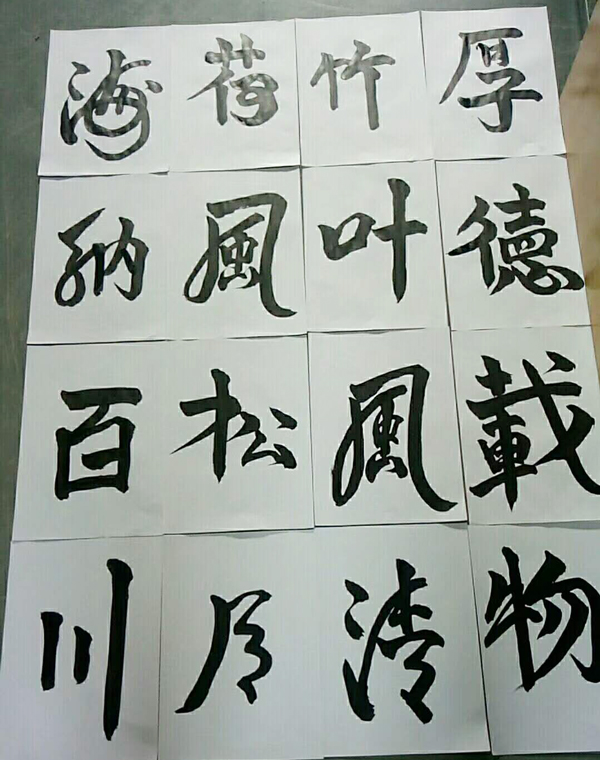 厚德載物
竹叶風清
荷風松月
海納百川